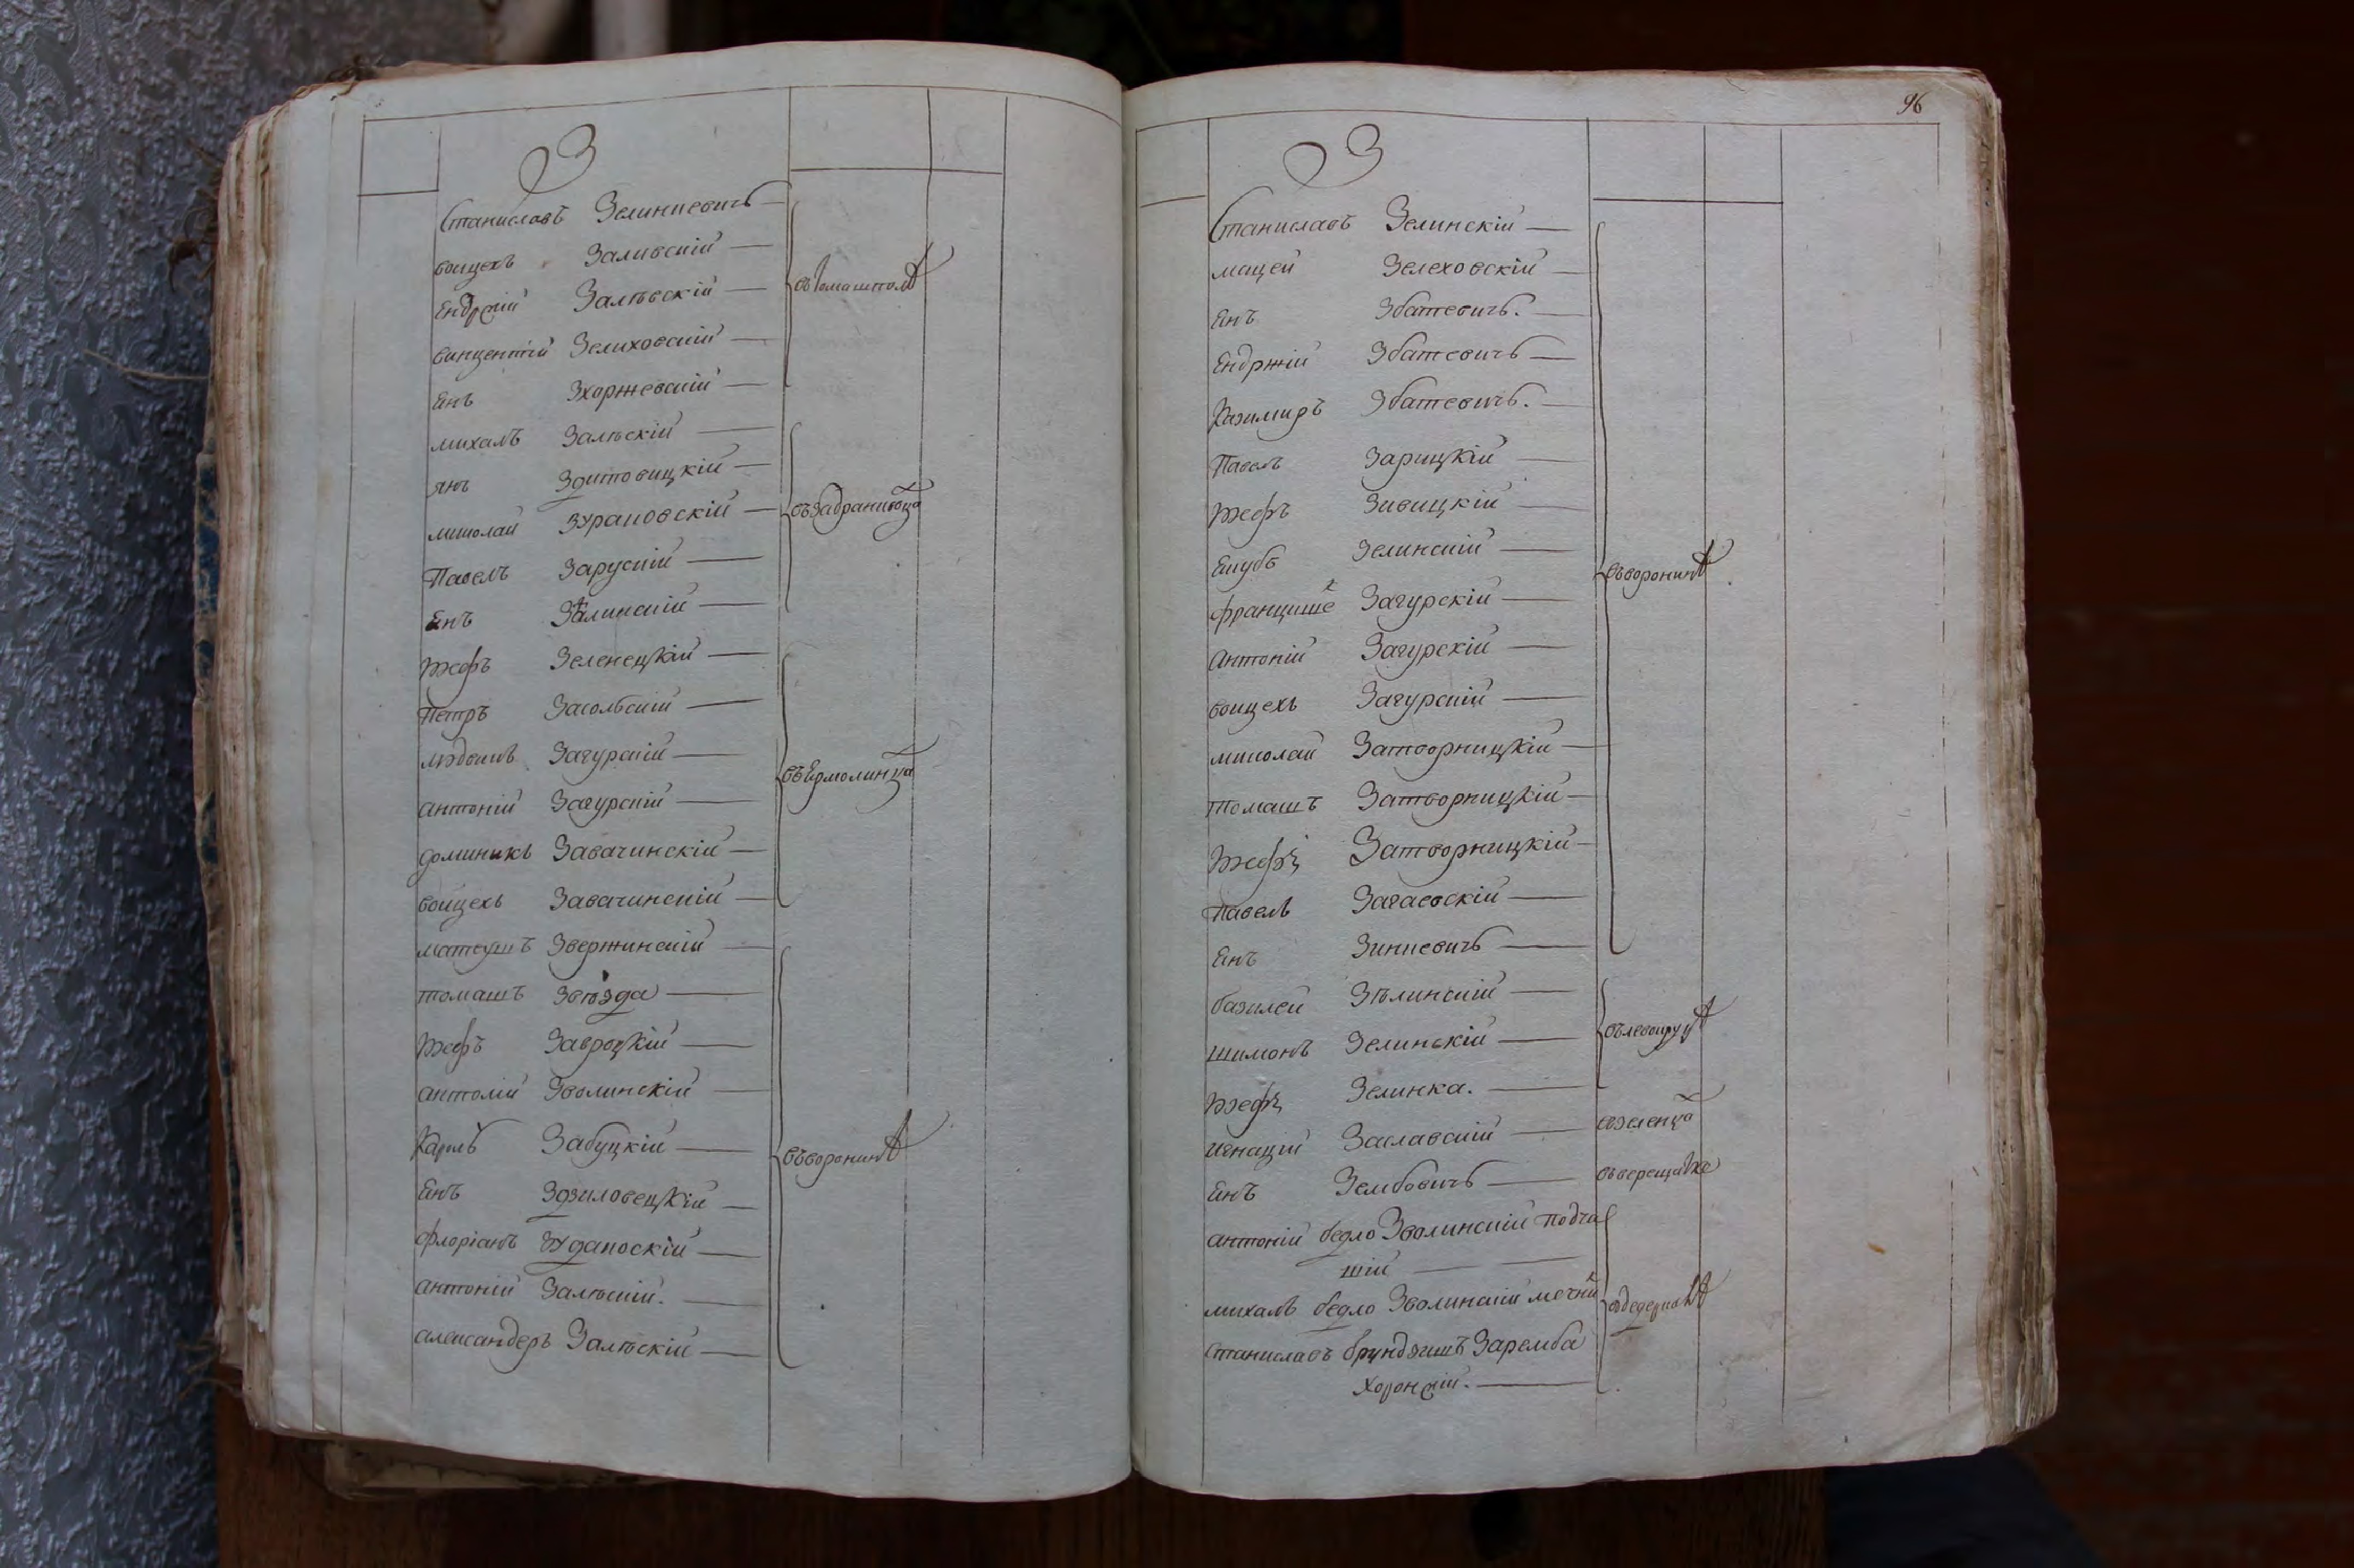 З
Станиславъ Зелинкевичъ
войцехъ Заливскій
Ендржій Залѣвскій
винцентій Зелиховскій
Енъ Зхоржевскій
въ Томашполѣ
михалъ Залѣскій
янъ Здитовицкій
миколай Зхрановскій
Павелъ Заруский
Енъ Зѣлинскій
въ
жефъ Зеленецкій
Петръ Закольскій
людвикъ Загурскій
антоній Загурскій
доминикъ Завачинскій
войцехъ Завачинскій
въ Ермолинца
матеушъ Звержинскій
томашъ Звѣзда
жефъ Завроцкій
антоній Зволинскій
Карлъ Забуцкій
Енъ Здзиловецкій
флоріанъ Зхданоскій
антоній Залѣскій.
александеръ Залѣскій
въ воронинѣ
96
З
Станиславъ Зелинскій
мацей Зелеховскій
Енъ Збатевичъ.
Ендржій Збатевичъ
Казимиръ Збатевичъ.
Павелъ Зарицкій
жефъ Зивицкій
Екубъ Зелинскій
францишекъ Загурскій
Антоній Загурскій
войцехъ Загурскій
миколай Затворницкій
томашъ Затворницкій
жефъ Затворницкій
Павелъ Загаевскій
Енъ Зинкевичъ
въ воронинѣ
базилей Зѣлинскій
шимонъ Зелинскій
жефъ Зелинка.
игнацій Заславскій
Енъ Зембовичъ
антоній бедло Зволинскій подча
шій
михалъ бедло Зволинскій мечни
станиславъ Заремба
Хоронжій.